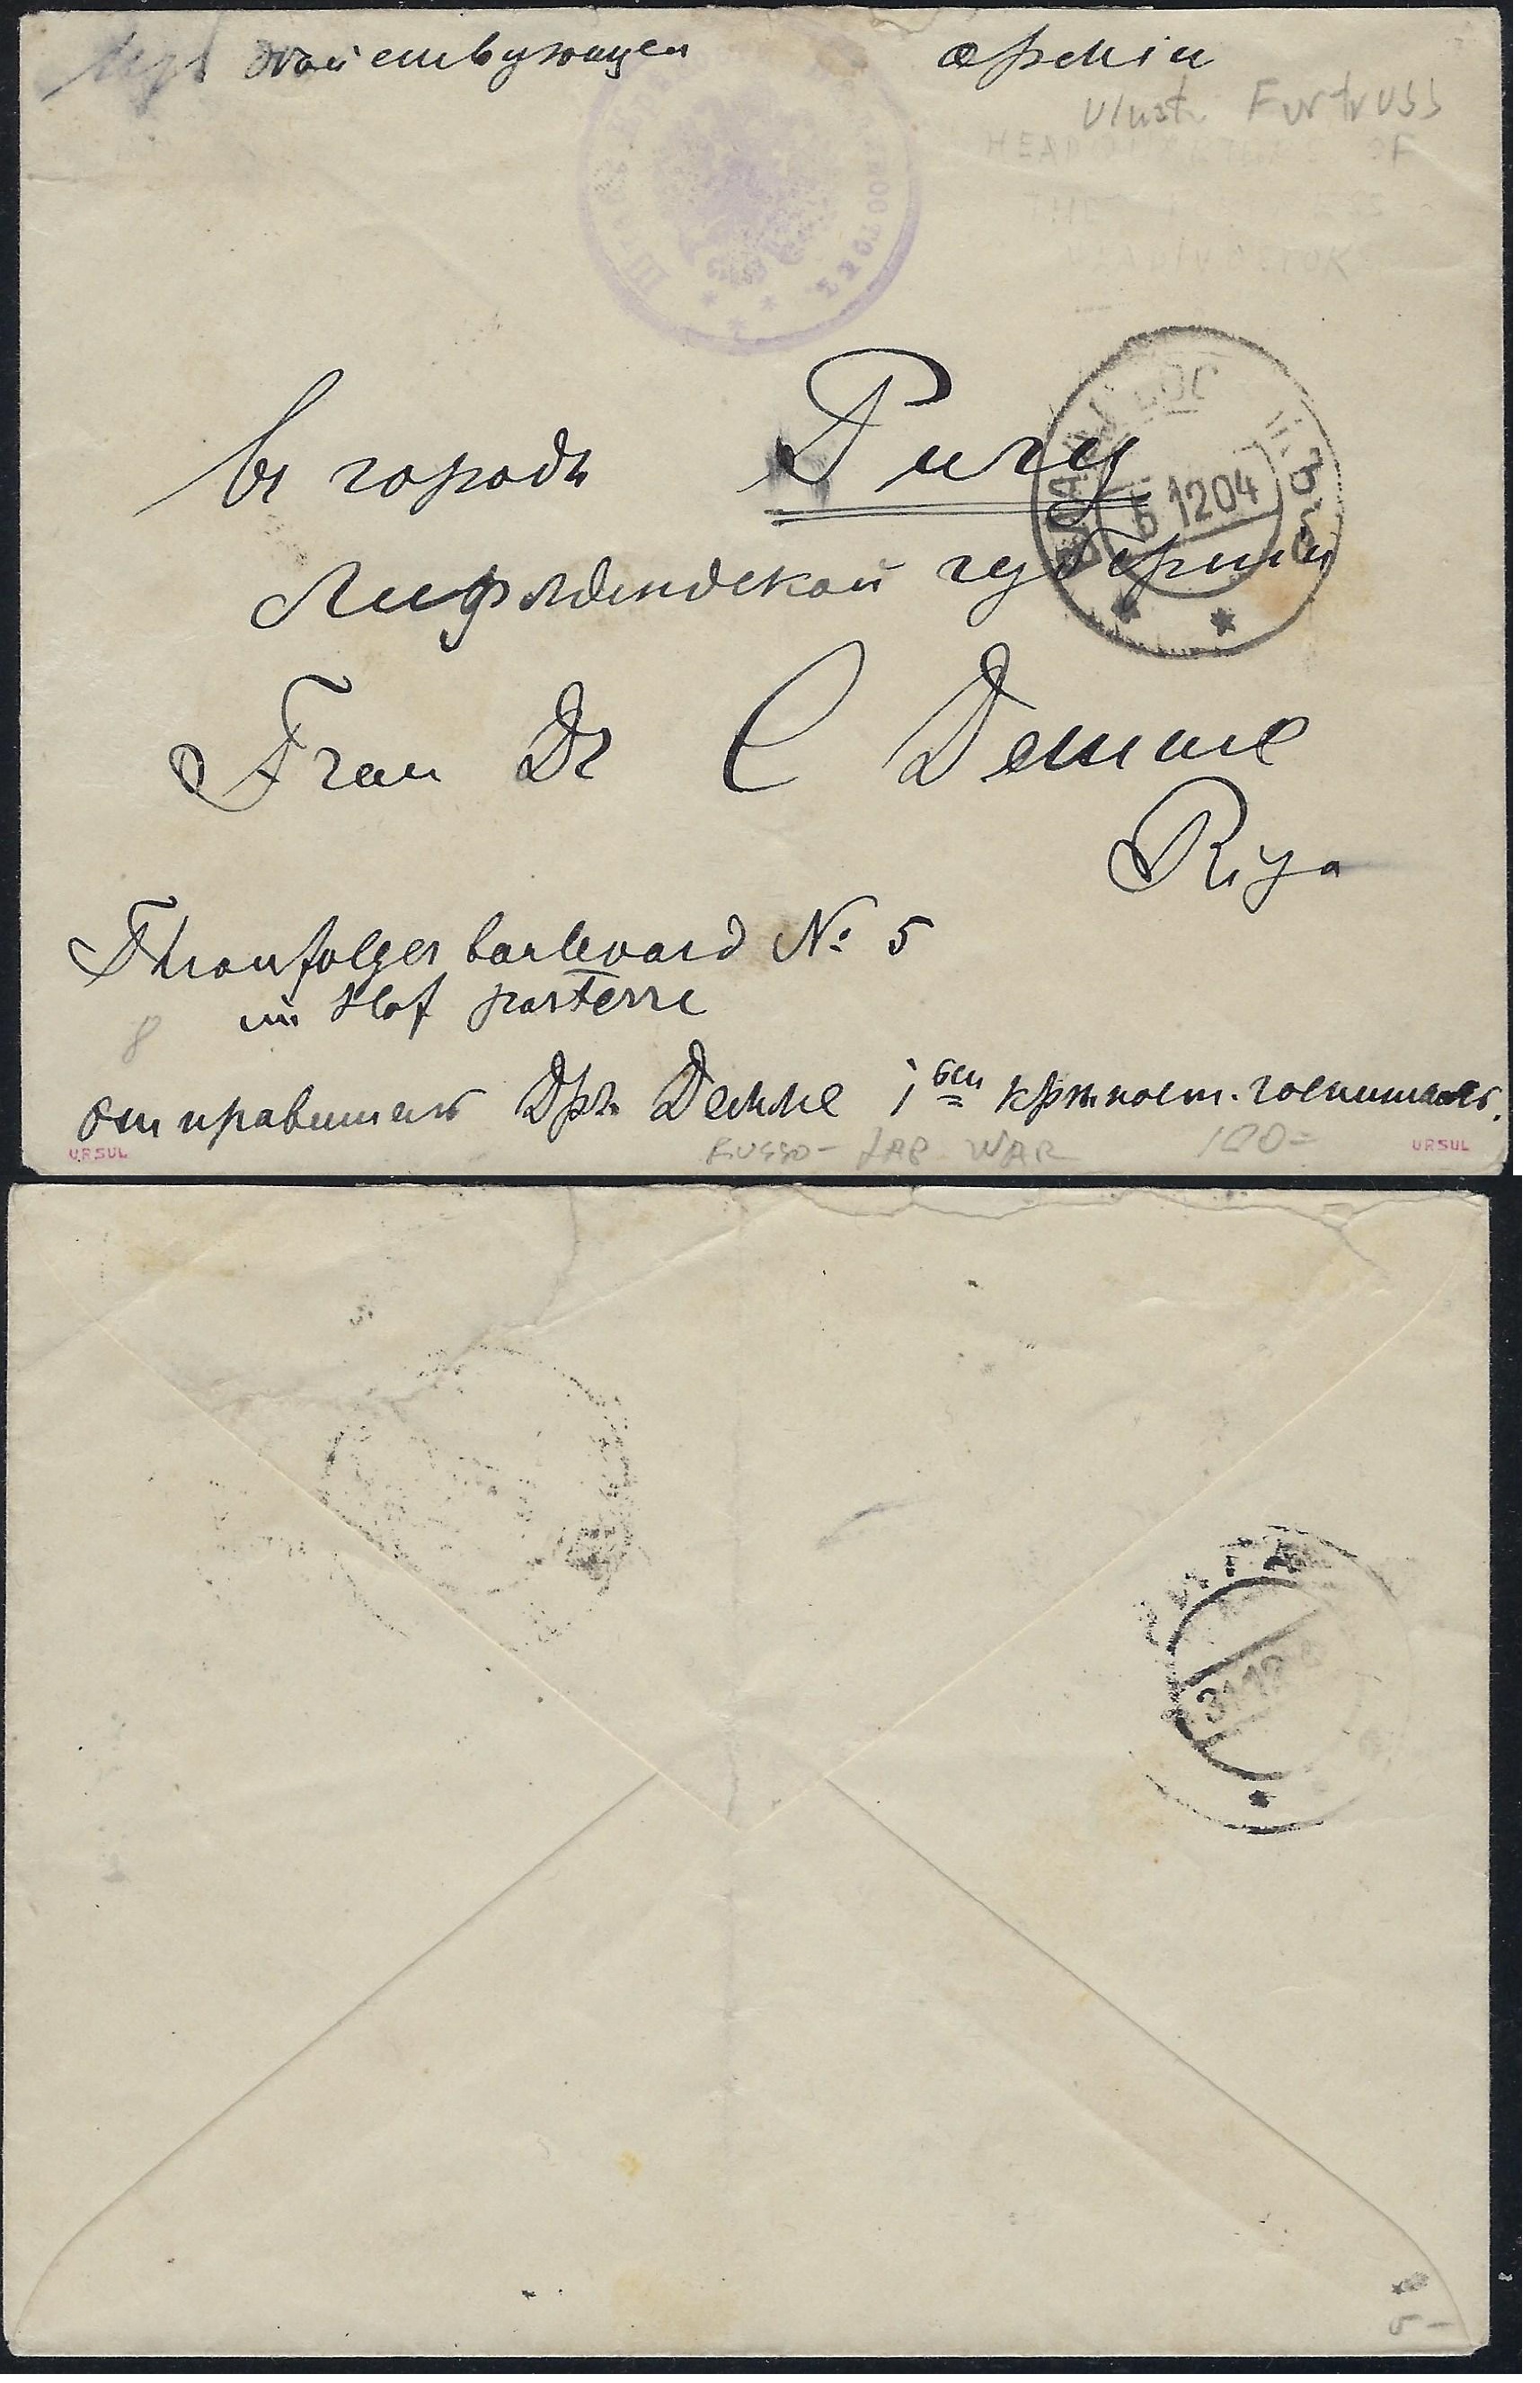 Изъ действующей арміи
Vlust. Furtruss
HEADQUARTERS OF
THE
VLADIVOSTOK
ШТАБЪ
въ городъ Ригу
6 12 04
Лифляндской губерніи
Frau Dr C Demme
Riga
Thronfolger boulevard № 5
im Hof parterre
8
отправитель Дръ Демме 1ый крѣпост. госпиталь.
URSUL
RUSSO-JAP WAR
100=
URSUL
РИГА
31 12